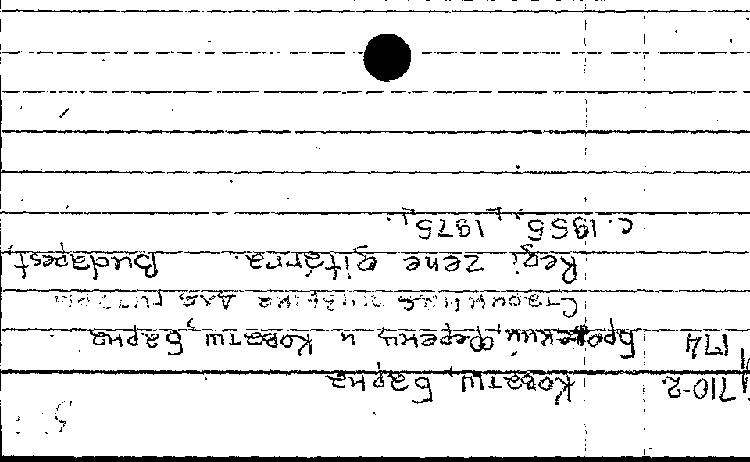 710-2 Коваты, Барна
174 Бродский, Ференц и Коваты, Барна
Старинная музыка для гитары
Régi zene gitárra. Budapest,
c. 1955, 1975.